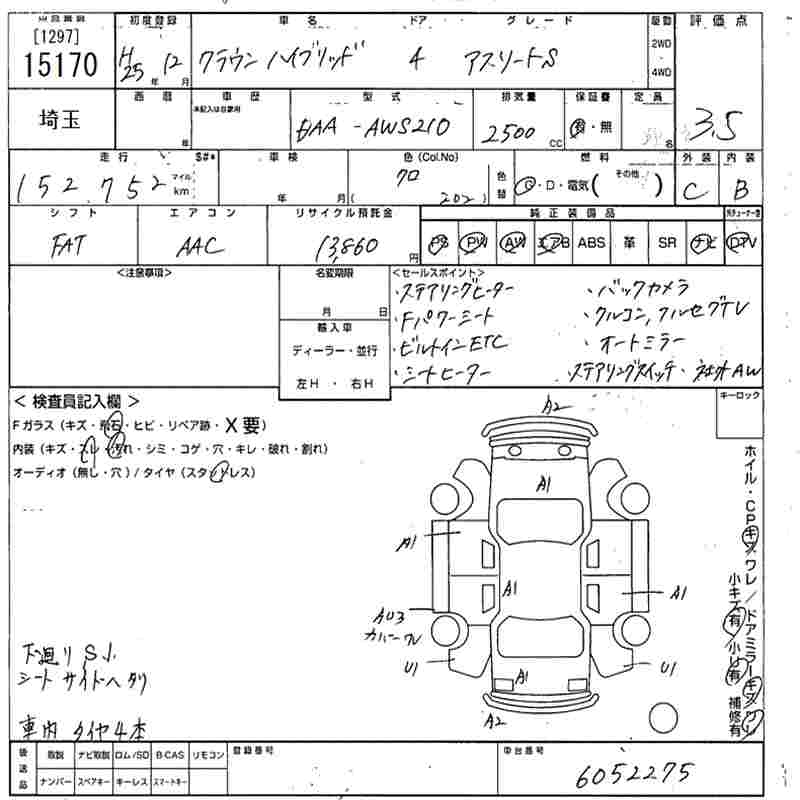 出品番号 初度登録 車名 ドア グレード 駆動 評価点
[1297]
15170 H25年 12月 クラウン ハイブリッド 4 アスリートS 2WD・4WD 3.5
埼玉 西暦 年 車歴 未記入は自家用 型式 DAA-AWS210 排気量 2500 CC 保証書 有・無 定員 名
走行 S#* 車検 色(Col.No) 燃料 外装 内装
152,752 マイル km 年 月 クロ (202) 色替 G・D・電気(その他) C B
シフト エアコン リサイクル預託金 純正装備品
FAT AAC 13,860円 PS PW AW エアB ABS 革 SR ナビ DTV
<注意事項> 名変期限 <セールスポイント>
月 日
輸入車
ディーラー・並行
左H・右H
・ステアリングヒーター ・バックカメラ
・Fパワーシート ・クルコン,フルセグTV
・ビルトインETC ・オートミラー
・シートヒーター ・ステアリングスイッチ・社外AW
<検査員記入欄> キーロック
Fガラス(キズ・飛石・ヒビ・リペア跡・X要)
内装(キズ・スレ・汚れ・シミ・コゲ・穴・キレ・破れ・割れ)
オーディオ(無し・穴)/タイヤ(スタッドレス)
A2
A1
A1
A1
A1
AU3
カバーワレ
U1
U1
A1
A2
ホイル・CPキズワレ/ドアミラーキズワレ
小キズ有 小U有 補修有
下廻りS小
シートサイドヘタリ
車内 タイヤ4本
後送品 取説 ナビ取説 ロム/SD B-CAS リモコン 登録番号 車台番号
ナンバー スペアキー キーレス スマートキー 6052275